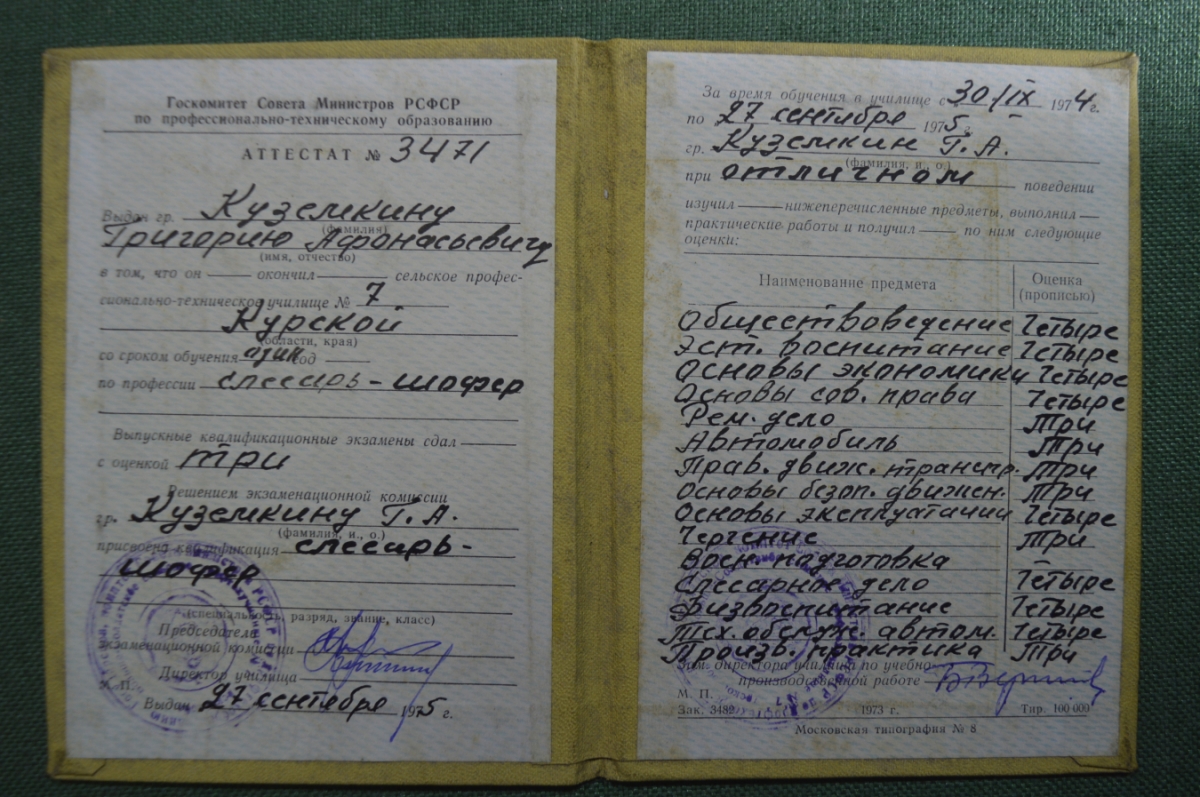 Госкомитет Совета Министров РСФСР
по профессионально-техническому образованию
АТТЕСТАТ № 3471
Выдан гр. Куземкину
(фамилия)
Григорию Афонасьевичу
(имя, отчество)
в том, что он — окончил — сельское профес-
сионально-техническое училище № 7
Курской
(области, края)
со сроком обучения один год
по профессии слесарь-шофер
Выпускные квалификационные экзамены сдал
с оценкой три
Решением экзаменационной комиссии
гр. Куземкину Г.А.
(фамилия, и., о.)
присвоена квалификация слесарь-
шофер
(специальность, разряд, звание, класс)
Председатель
экзаменационной комиссии
Директор училища
М. П.
Выдан 27 сентября 1975 г.
За время обучения в училище с 30/IX 1974 г.
по 27 сентября 1975 г.
гр. Куземкин Г. А.
(фамилия, и., о.)
при отличном поведении
изучил — нижеперечисленные предметы, выполнил —
практические работы и получил — по ним следующие
оценки:
Наименование предмета Оценка
(прописью)
Обществоведение четыре
Эст. воспитание четыре
Основы экономики четыре
Основы сов. права четыре
Рем. дело три
Автомобиль три
Прав. движ. трансп. три
Основы безоп. движен. три
Основы эксплуатации четыре
Черчение три
Воен. подготовка
Слесарное дело четыре
Физвоспитание четыре
Тех. обслуж. автом. четыре
Произв. практика три
Зам. директора училища по учебно-
производственной работе
М. П.
Зак. 3482 1973 г. Тир. 100 000
Московская типография № 8